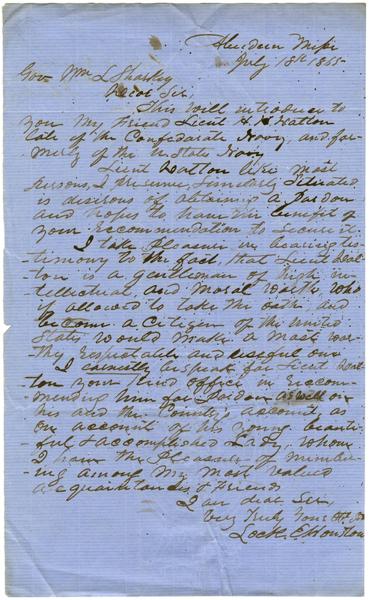 Aberdeen Miss
July 18th 1865
Gov Wm L Sharkey
Dear Sir,
This will introduce to
you my friend Lieut H. H. Dalton
late of the Confederate Navy, and for-
merly of the U States Navy
Lieut Dalton like most
persons, I presume, similarly situated
is desirous of obtaining a Pardon
and hopes to have the benefit of
your reccommendation to secure it.
I take pleasure in bearing tes-
timony to the fact, that Lieut Dal-
ton is a gentleman of high in-
tellectual and moral worth, who
if allowed to take the oath, and
become a citizen of the United
States would make a most wor-
thy respectable and useful one
I earnestly bespeak for Lieut Dal-
ton your kind offices in reccom-
mending him for Pardon as well on
his and the Country's account, as
on account of his young beauti-
ful & accomplished Lady, whom
I have the pleasure of number-
ing among my most valued
acquaintances & friends
I am dear Sir,
Very Truly Yours
Lock E Houston